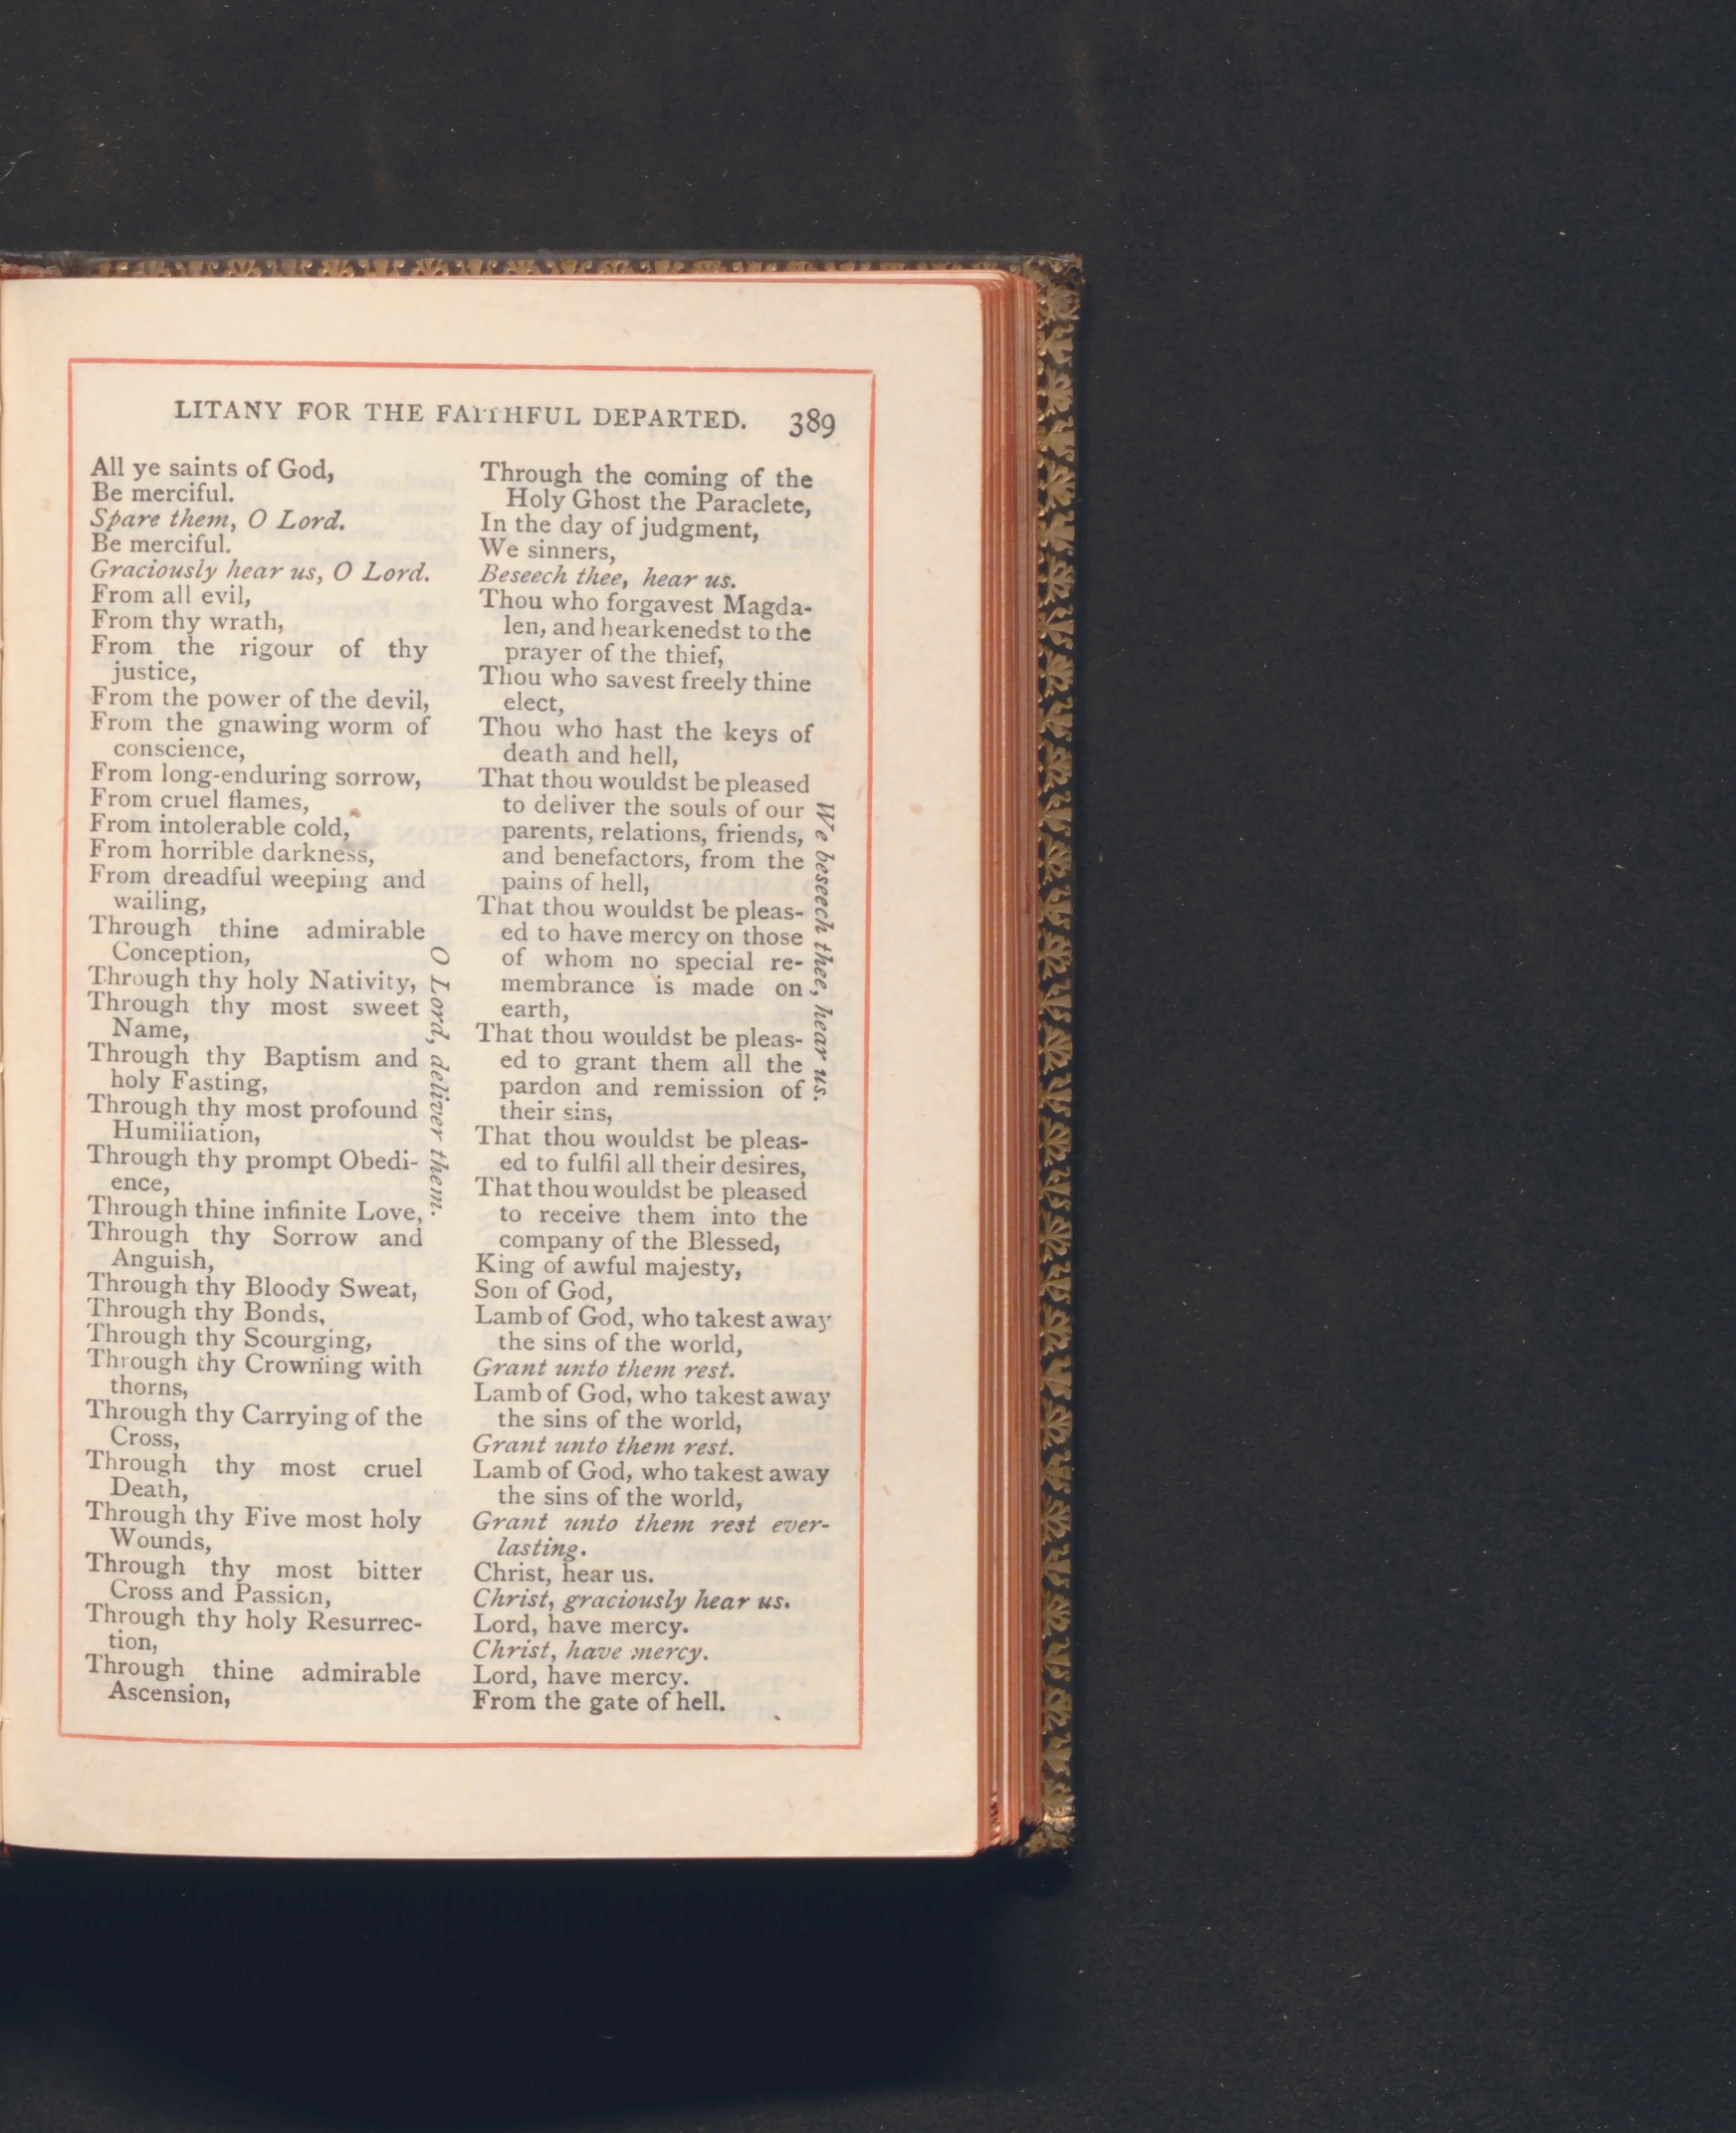 LITANY FOR THE FAITHFUL DEPARTED. 389
All ye saints of God,
Be merciful.
Spare them, O Lord.
Be merciful.
Graciously hear us, O Lord.
From all evil,
From thy wrath,
From the rigour of thy
justice,
From the power of the devil,
From the gnawing worm of
conscience,
From long-enduring sorrow,
From cruel flames,
From intolerable cold,
From horrible darkness,
From dreadful weeping and
wailing,
Through thine admirable
Conception,
Through thy holy Nativity,
Through thy most sweet
Name,
Through thy Baptism and
holy Fasting,
Through thy most profound
Humiliation,
Through thy prompt Obedi-
ence,
Through thine infinite Love,
Through thy Sorrow and
Anguish,
Through thy Bloody Sweat,
Through thy Bonds,
Through thy Scourging,
Through thy Crowning with
thorns,
Through thy Carrying of the
Cross,
Through thy most cruel
Death,
Through thy Five most holy
Wounds,
Through thy most bitter
Cross and Passion,
Through thy holy Resurrec-
tion,
Through thine admirable
Ascension,
O Lord, deliver them.
Through the coming of the
Holy Ghost the Paraclete,
In the day of judgment,
We sinners,
Beseech thee, hear us.
Thou who forgavest Magda-
len, and hearkenedst to the
prayer of the thief,
Thou who savest freely thine
elect,
Thou who hast the keys of
death and hell,
That thou wouldst be pleased
to deliver the souls of our
parents, relations, friends,
and benefactors, from the
pains of hell,
That thou wouldst be pleas-
ed to have mercy on those
of whom no special re-
membrance is made on
earth,
That thou wouldst be pleas-
ed to grant them all the
pardon and remission of
their sins,
That thou wouldst be pleas-
ed to fulfil all their desires,
That thou wouldst be pleased
to receive them into the
company of the Blessed,
King of awful majesty,
Son of God,
We beseech thee, hear us.
Lamb of God, who takest away
the sins of the world,
Grant unto them rest.
Lamb of God, who takest away
the sins of the world,
Grant unto them rest.
Lamb of God, who takest away
the sins of the world,
Grant unto them rest ever-
lasting.
Christ, hear us.
Christ, graciously hear us.
Lord, have mercy.
Christ, have mercy.
Lord, have mercy.
From the gate of hell.